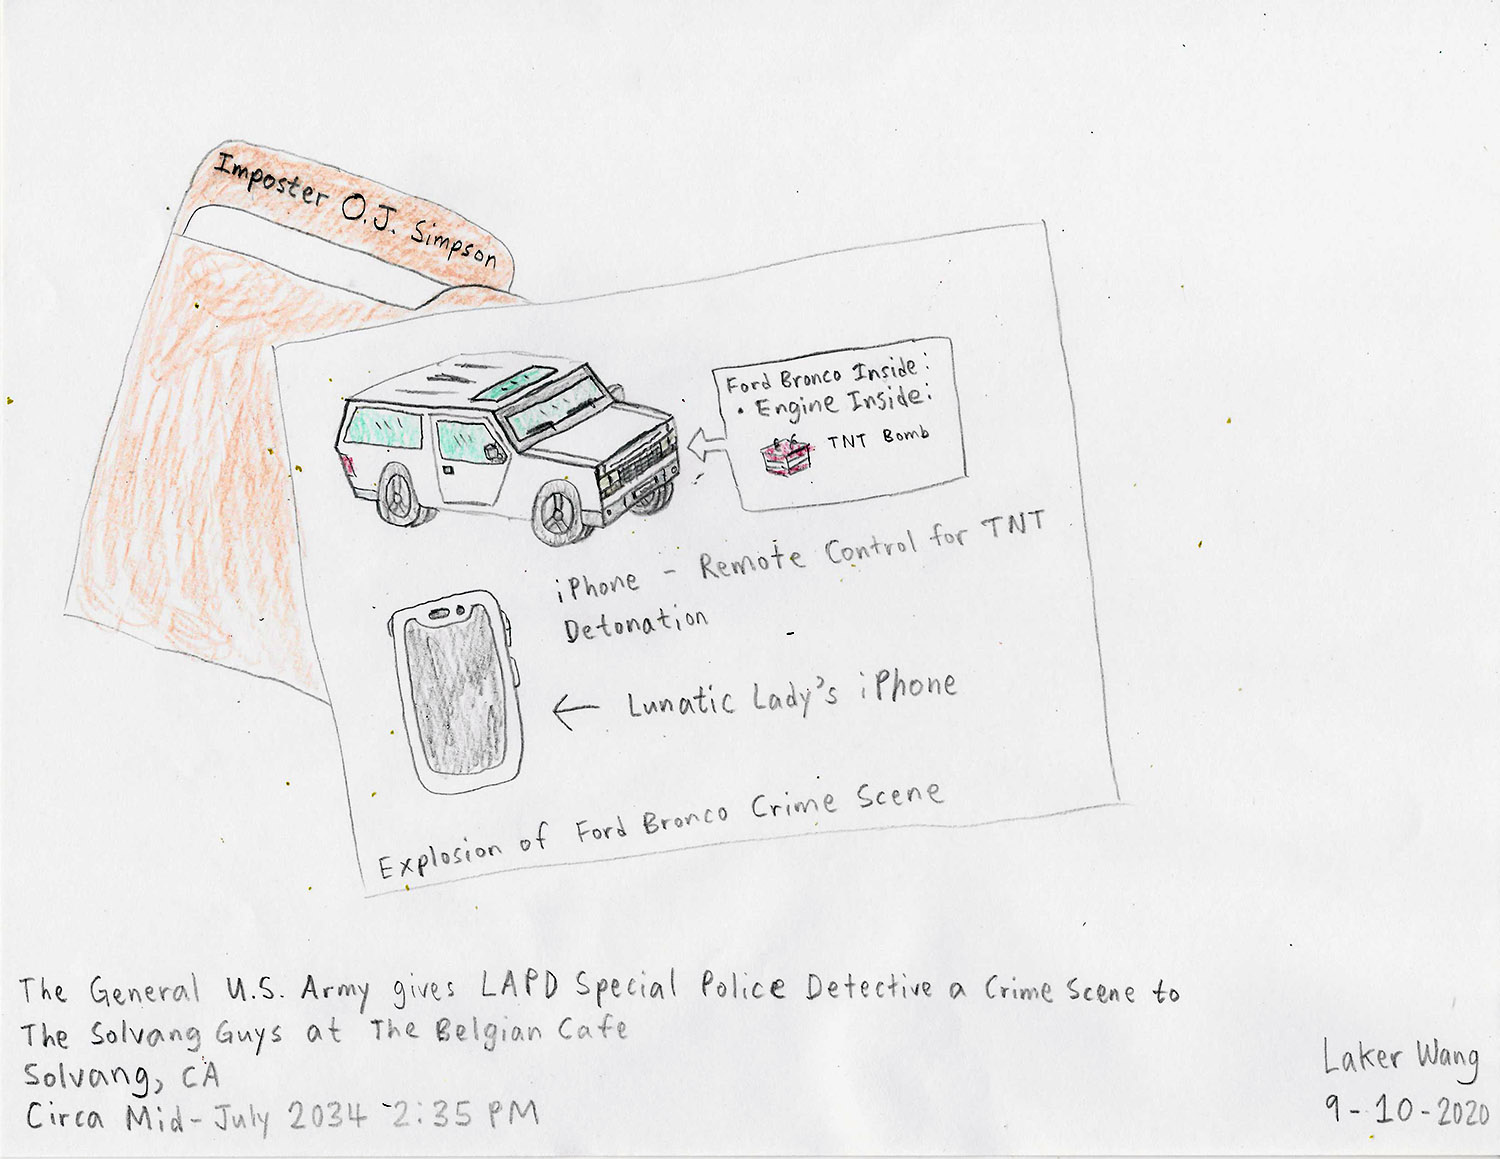 Imposter O.J. Simpson
Ford Bronco Inside:
• Engine Inside:
TNT Bomb
iPhone - Remote Control for TNT
Detonation
← Lunatic Lady's iPhone
Explosion of Ford Bronco Crime Scene
The General U.S. Army gives LAPD Special Police Detective a Crime Scene to
The Solvang Guys at The Belgian Cafe
Solvang, CA
Circa Mid-July 2034 2:35 PM
Laker Wang
9-10-2020